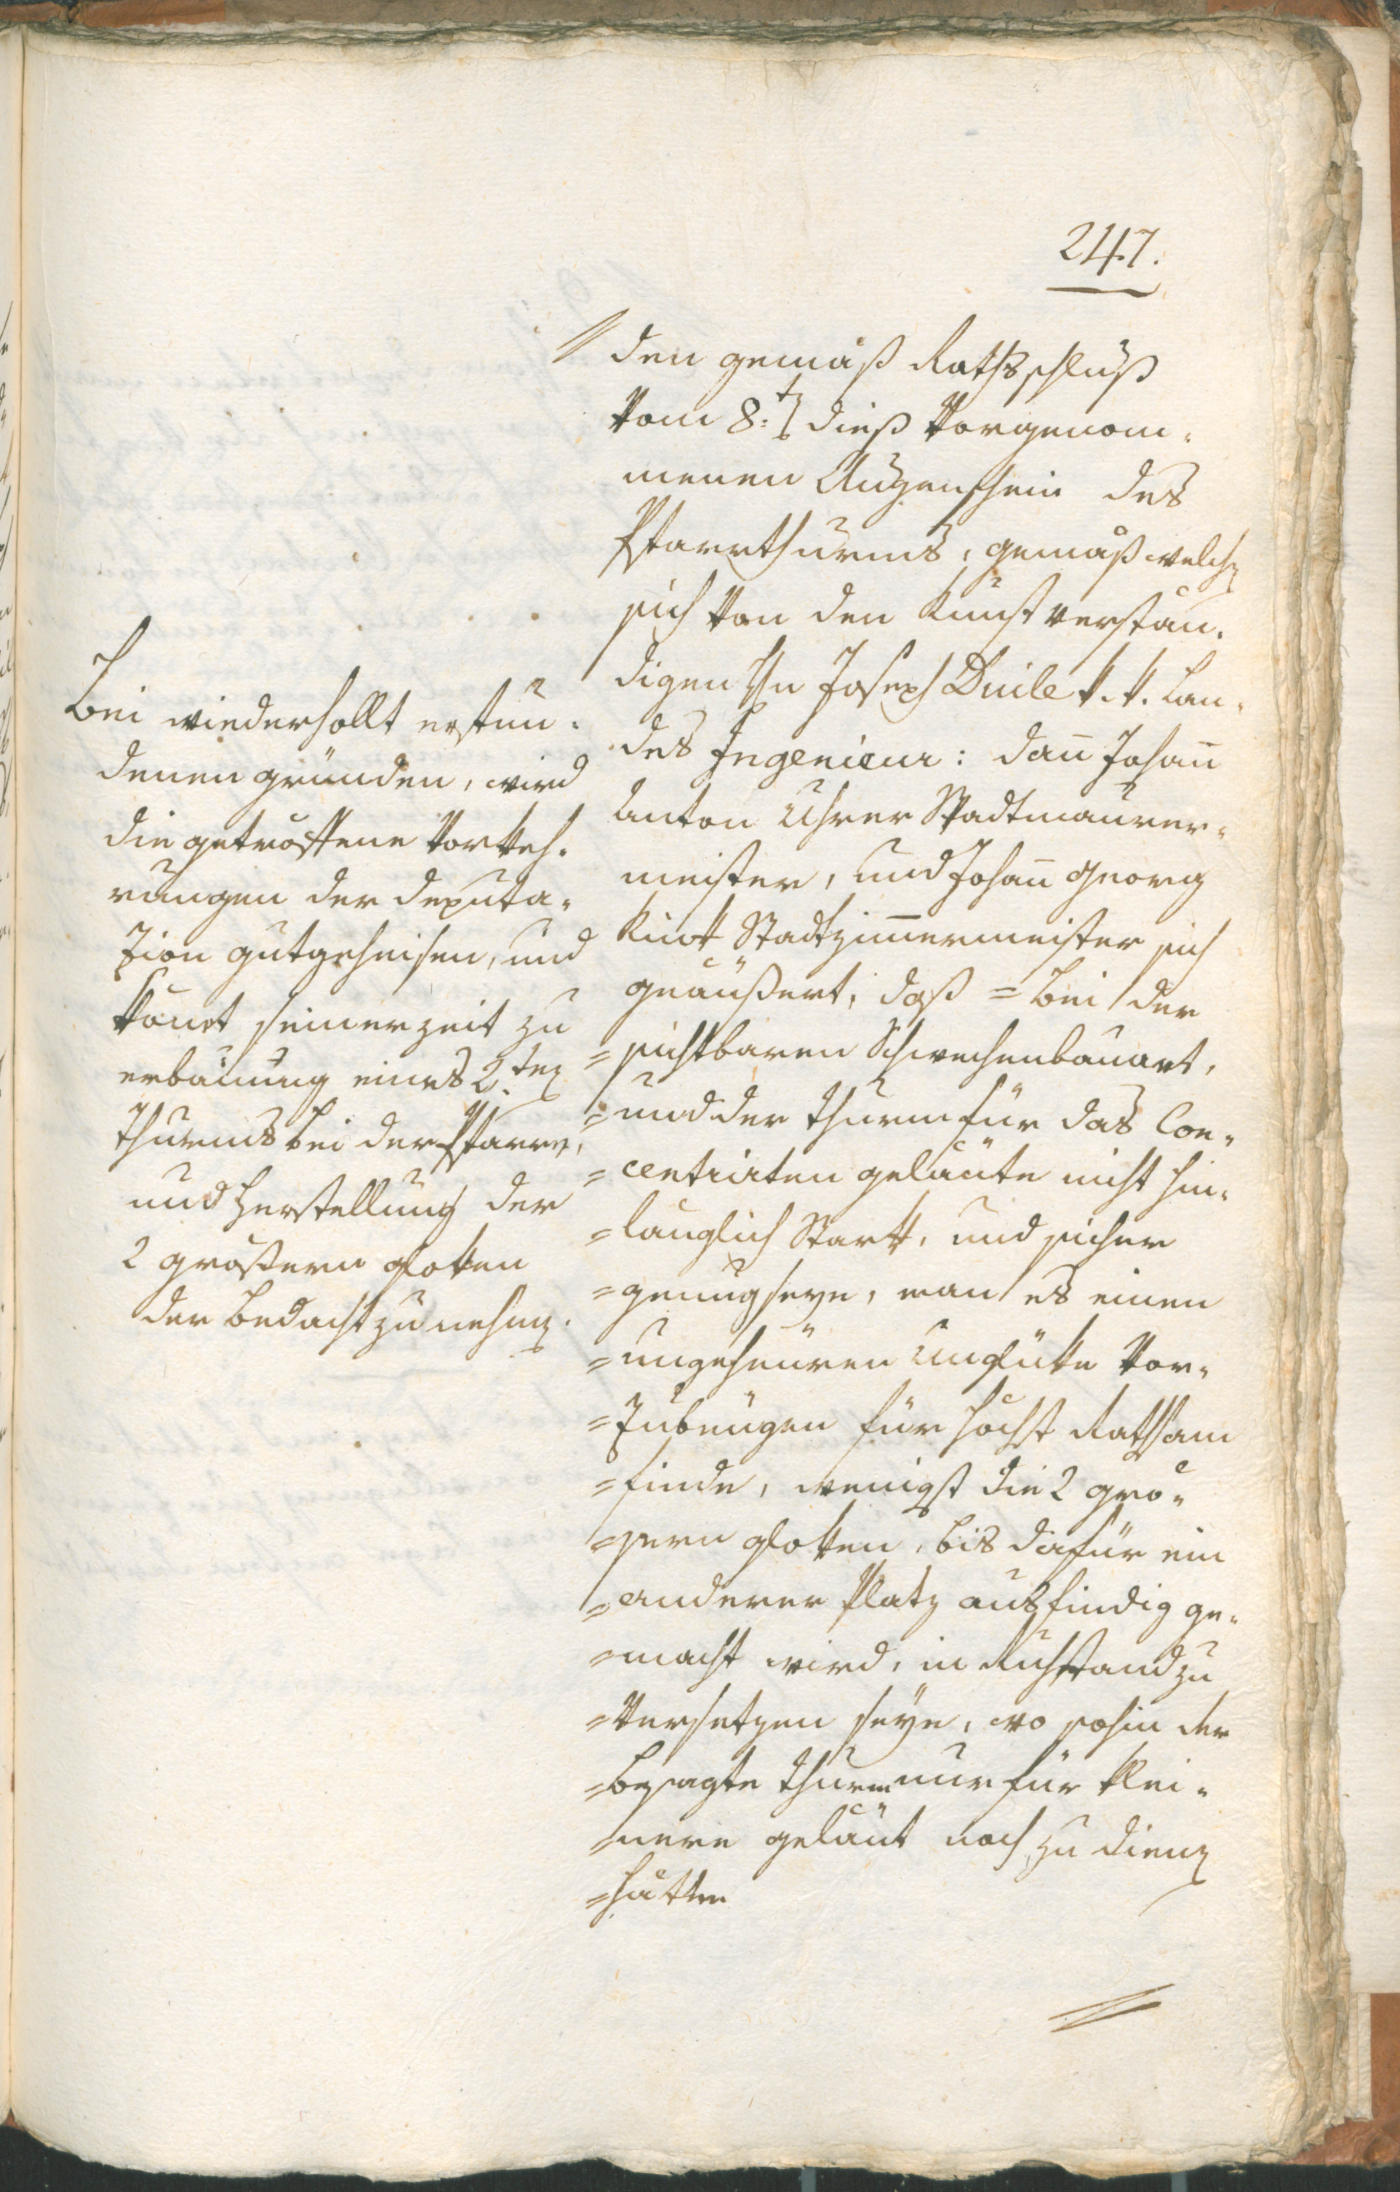 247.
den gemäß Rathsschluß
vom 8:t dieß vorgenom¬
menen Augenschein des
Pfarrthurms, gemäß welchen
sich von den Kunstverstän¬
digen Hn Joseph Duile k. k. Lan¬
des Ingenieur: dan̄ Johan̄
Anton Uhrer Stadtmaurer¬
meister, und Johan̄ Georg
Kink Stadtzim̄ermeister sich
geäußert, daß = bei der
= sichtbaren Schwechenbauart,
= und der Thurm für das Con¬
= centrirten geläute nicht hin¬
= länglich Stark, und sicher
= genug seye, man es einen
= ungeheüren Unglüke vor¬
= zubeügen für höchst Rathsam
= finde, wenigst die 2 grö¬
= ßern gloken, bis dafür ein
= anderer Platz ausfindig ge¬
= macht wird, in Ruhstand zu
= versetzen seye, wo sohin der
= besagte Thurm nur für klei¬
= nere geläut noch zu dienen
= hätten
Bei wiederhollt erstun¬
denen gründen, wird
die getroffene Vorkeh¬
rungen der Deputa¬
zion gutgeheisen, und
könt seinerzeit zu
erbauung eines 2ten
Thurms bei der Pfarre,
und Herstellung der
2 größern gloken
der bedacht zu nehmen.